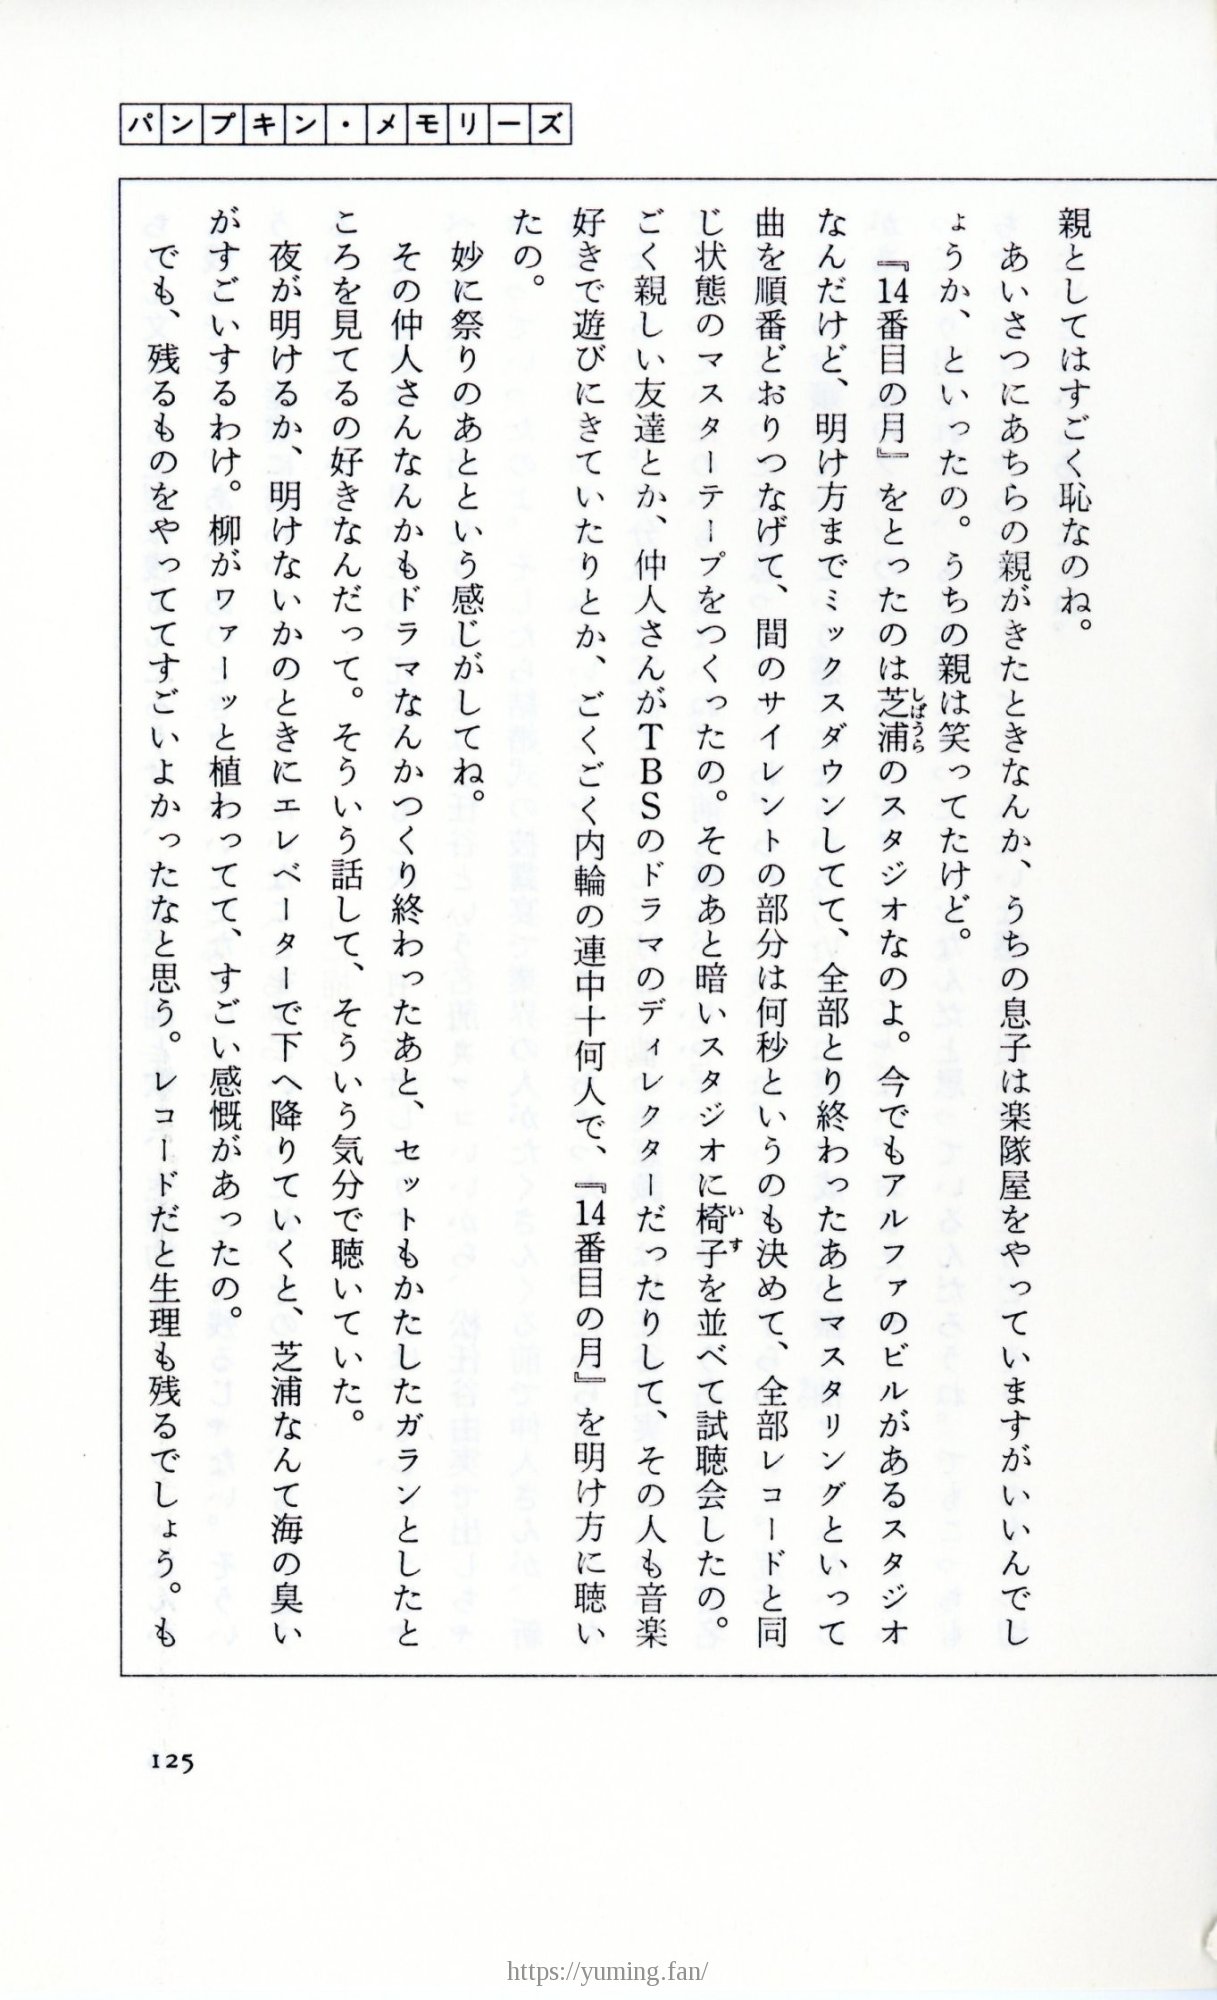 パンプキン・メモリーズ
親としてはすごく恥なのね。
あいさつにあちらの親がきたときなんか、うちの息子は楽隊屋をやっていますがいいんでし
ょうか、といったの。うちの親は笑ってたけど。
『14番目の月』をとったのは芝浦のスタジオなのよ。今でもアルファのビルがあるスタジオ
しばうら
なんだけど、明け方までミックスダウンしてて、全部とり終わったあとマスタリングといって
曲を順番どおりつなげて、間のサイレントの部分は何秒というのも決めて、全部レコードと同
じ状態のマスターテープをつくったの。そのあと暗いスタジオに椅子を並べて試聴会したの。
いす
ごく親しい友達とか、仲人さんがTBSのドラマのディレクターだったりして、その人も音楽
好きで遊びにきていたりとか、ごくごく内輪の連中十何人で、『14番目の月』を明け方に聴い
たの。
妙に祭りのあとという感じがしてね。
その仲人さんなんかもドラマなんかつくり終わったあと、セットもかたしたガランとしたと
ころを見てるの好きなんだって。そういう話して、そういう気分で聴いていた。
夜が明けるか、明けないかのときにエレベーターで下へ降りていくと、芝浦なんて海の臭い
がすごいするわけ。柳がワァーッと植わってて、すごい感慨があったの。
でも、残るものをやっててすごいよかったなと思う。レコードだと生理も残るでしょう。も
125
https://yuming.fan/